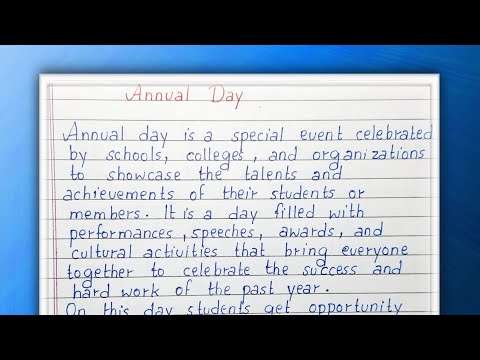 Annual Day
Annual day is a special event celebrated
by schools, colleges, and organizations
to showcase the talents and
achievements of their students or
members. It is a day filled with
performances, speeches, awards, and
cultural activities that bring everyone
together to celebrate the success and
hard work of the past year.
On this day students get opportunity